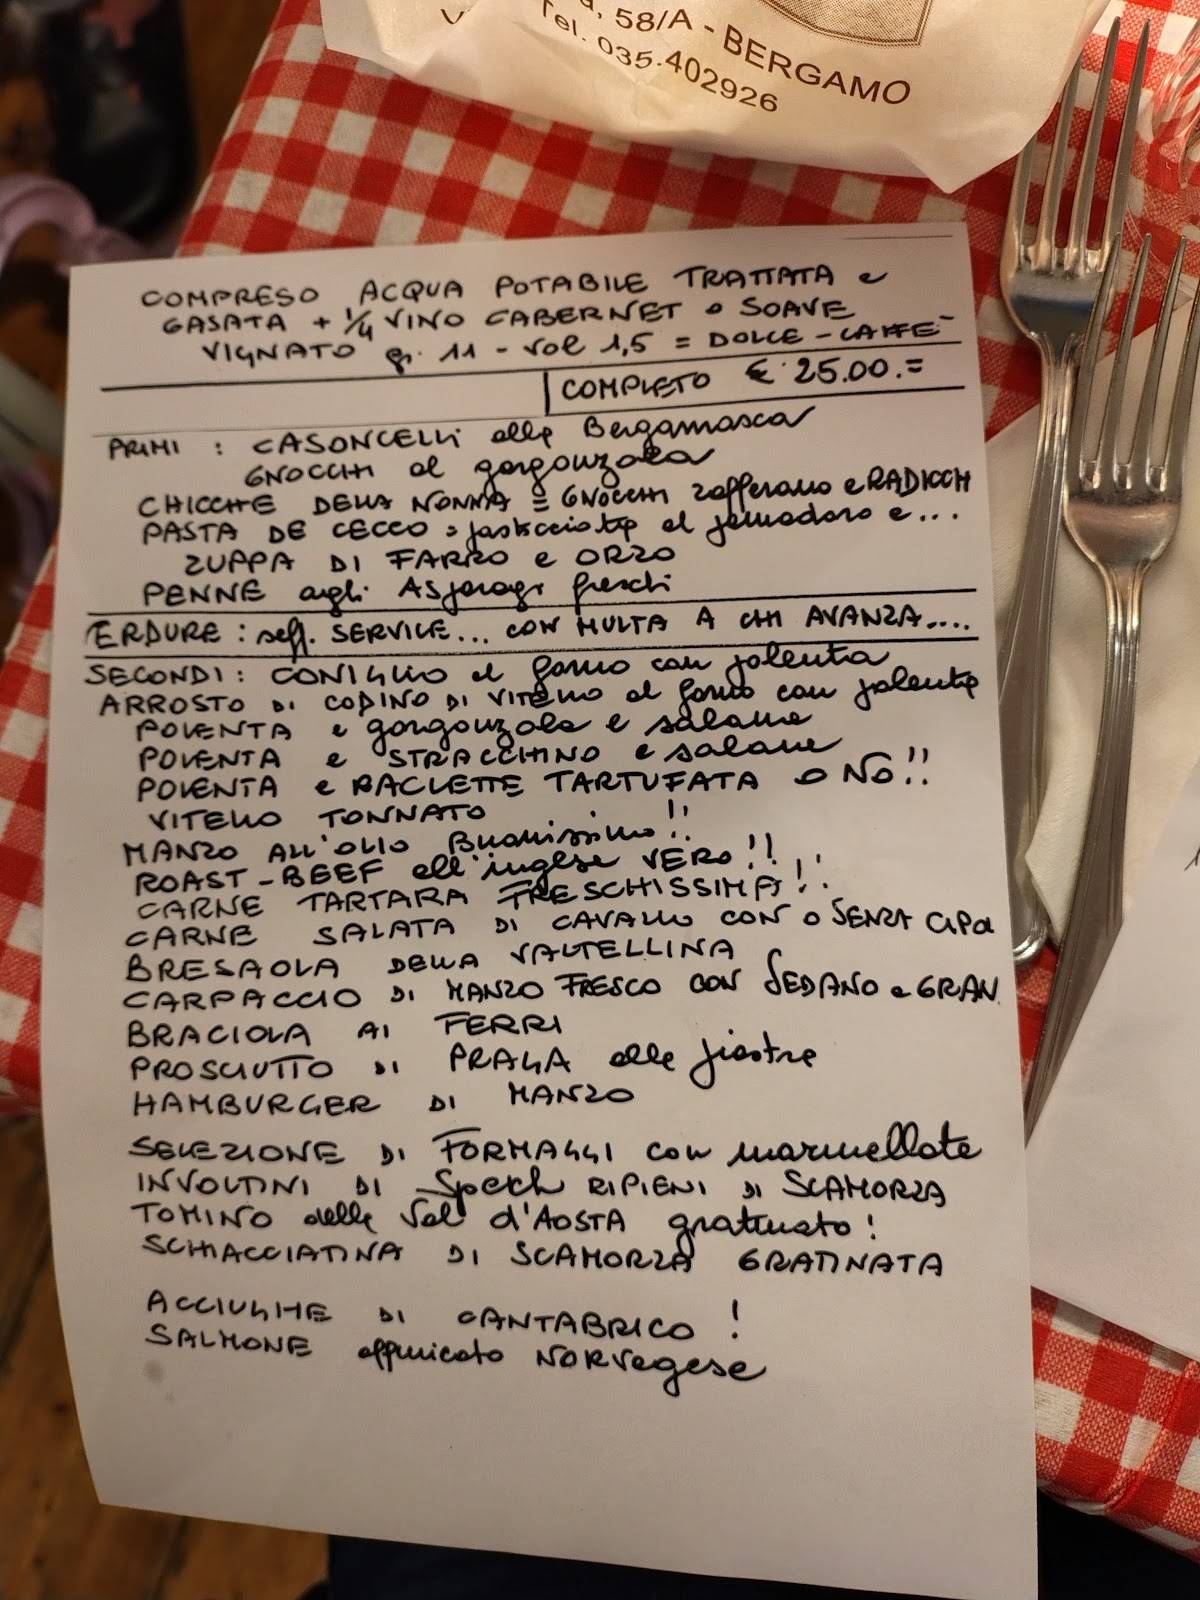 58/A - BERGAMO
Tel. 035.402926
COMPRESO ACQUA POTABILE TRATTATA e
GASATA + 1/4 VINO CABERNET o SOAVE
VIGNATO gr. 11 - vol 1,5 = DOLCE - CAFFE'
COMPLETO € 25.00.=
PRIMI : CASONCELLi alla Bergamasca
GNOCCHI al gorgonzola
CHICCHE DELLA NONNA = GNOCCHI zafferano e RADICCH
PASTA DE CECCO : pasticciata al pomodoro e ...
ZUPPA DI FARRO e ORZO
PENNE agli Asparagi freschi
ERDURE : self. SERVICE... CON MULTA A CHI AVANZA....
SECONDI : CONIGLIO al forno con polenta
ARROSTO DI CODINO DI VITELLO al forno con polenta
POLENTA e gorgonzola e salame
POLENTA e STRACCHINO e salame
POLENTA e RACLETTE TARTUFATA o NO!!
VITELLO TONNATO
MANZO ALL'OLIO Buonissimo!!
ROAST-BEEF all'inglese VERO!!
CARNE TARTARA FRESCHISSIMA!!
CARNE SALATA DI CAVALLO CON o SENZA CIPOL
BRESAOLA DELLA VALTELLINA
CARPACCIO DI MANZO FRESCO CON SEDANO e GRAN
BRACIOLA AI FERRI
PROSCIUTTO DI PRAGA alla piastra
HAMBURGER DI MANZO
SELEZIONE DI FORMAGGI con marmellate
INVOLTINI DI Speck RIPIENI DI SCAMORZA
TOMINO della Val d'AOSTA gratinato!
SCHIACCIATINA DI SCAMORZA GRATINATA
ACCIUGHE DI CANTABRICO !
SALMONE affumicato NORVegese